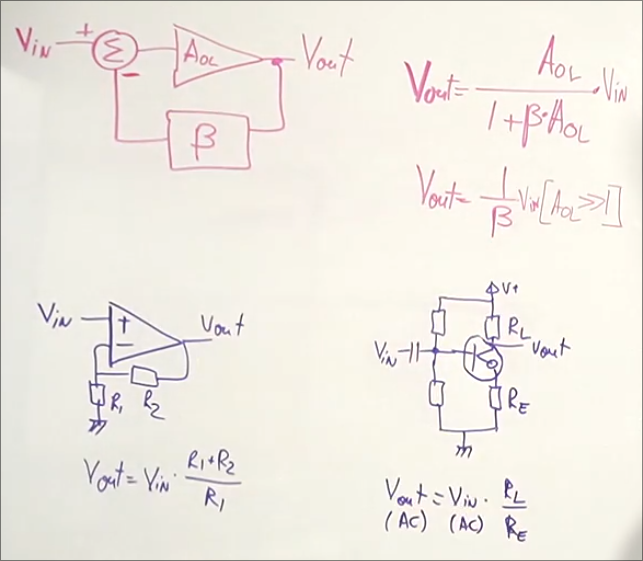 V_IN + Σ − A_OL Vout
β
Vout = A_OL / (1 + β·A_OL) · V_IN
Vout = 1/β V_IN [A_OL >> 1]
V_IN + − Vout
R₁ R₂
Vout = V_IN · (R₁+R₂) / R₁
V+
R_L
V_IN Vout
R_E
Vout = V_IN · R_L / R_E
(AC) (AC)